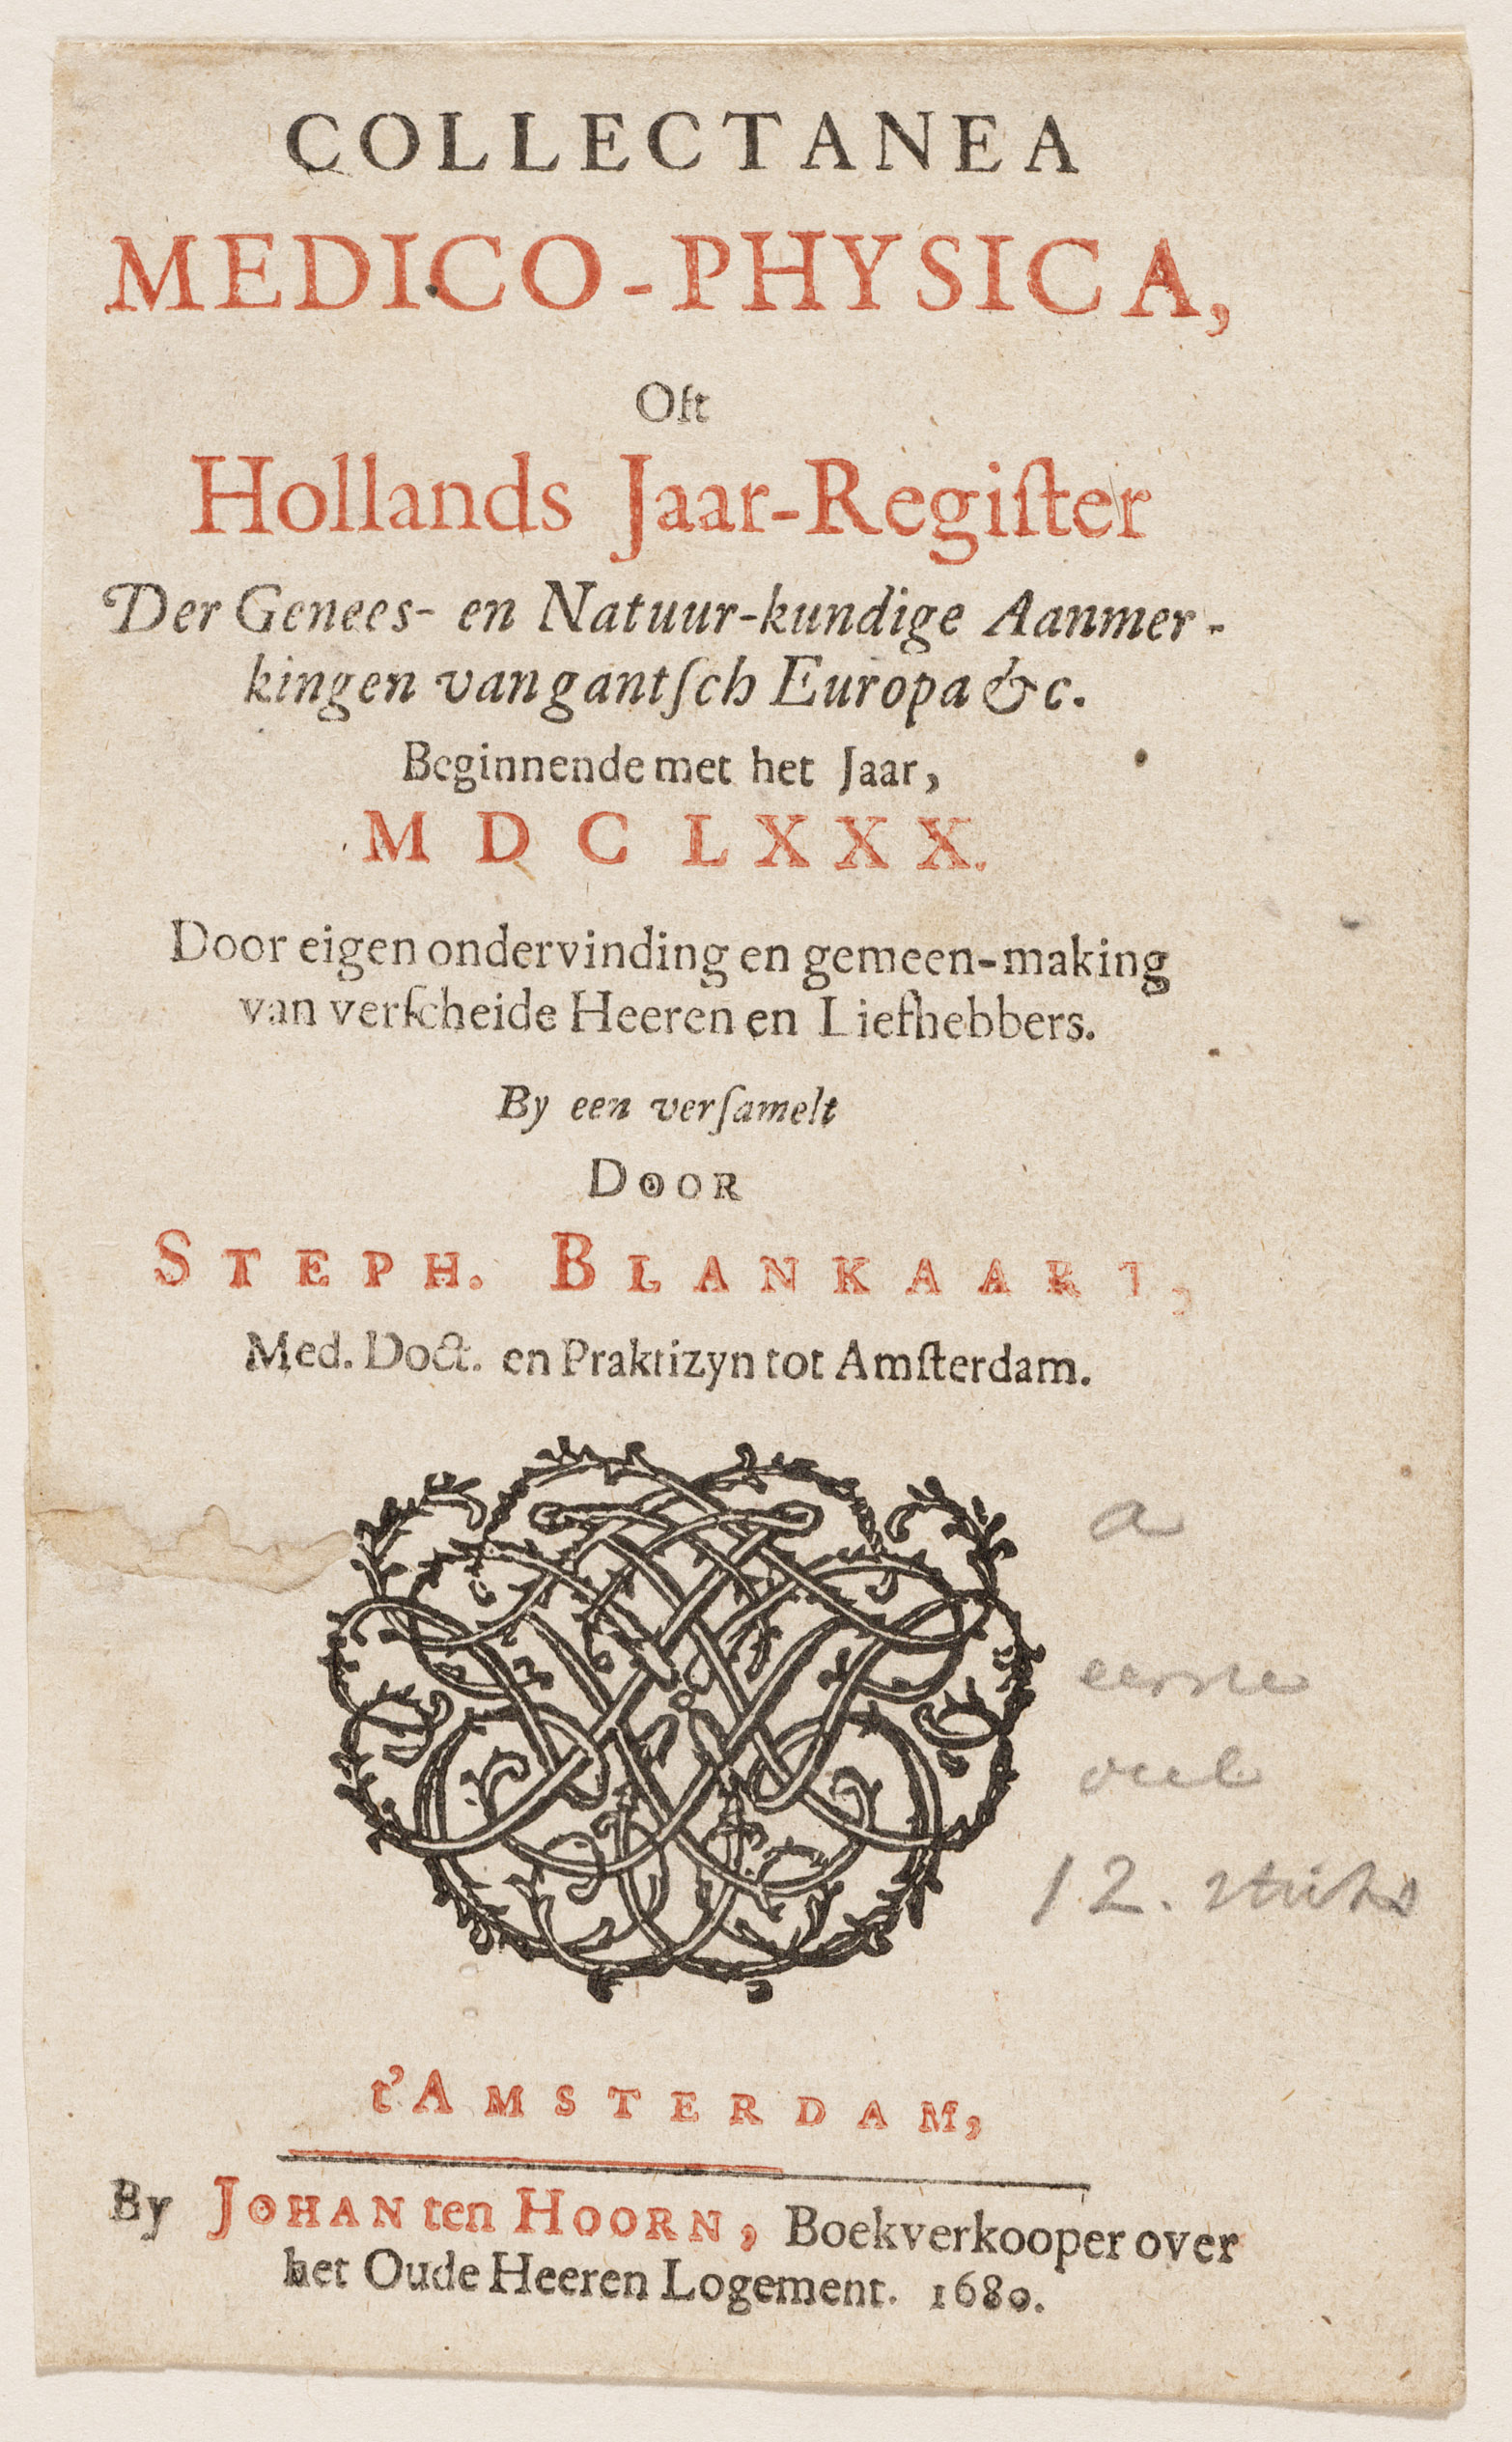 COLLECTANEA
MEDICO-PHYSICA,
Oft
Hollands Jaar-Regiſter
Der Genees- en Natuur-kundige Aanmer-
kingen van gantſch Europa &c.
Beginnende met het Jaar,
MDCLXXX.
Door eigen ondervinding en gemeen-making
van verſcheide Heeren en Liefhebbers.
By een verſamelt
DOOR
STEPH. BLANKAART,
Med. Doct. en Praktizyn tot Amſterdam.
a
eerste
deel
12. stuks
t'AMSTERDAM,
By JOHAN ten HOORN, Boekverkooper over
het Oude Heeren Logement. 1680.